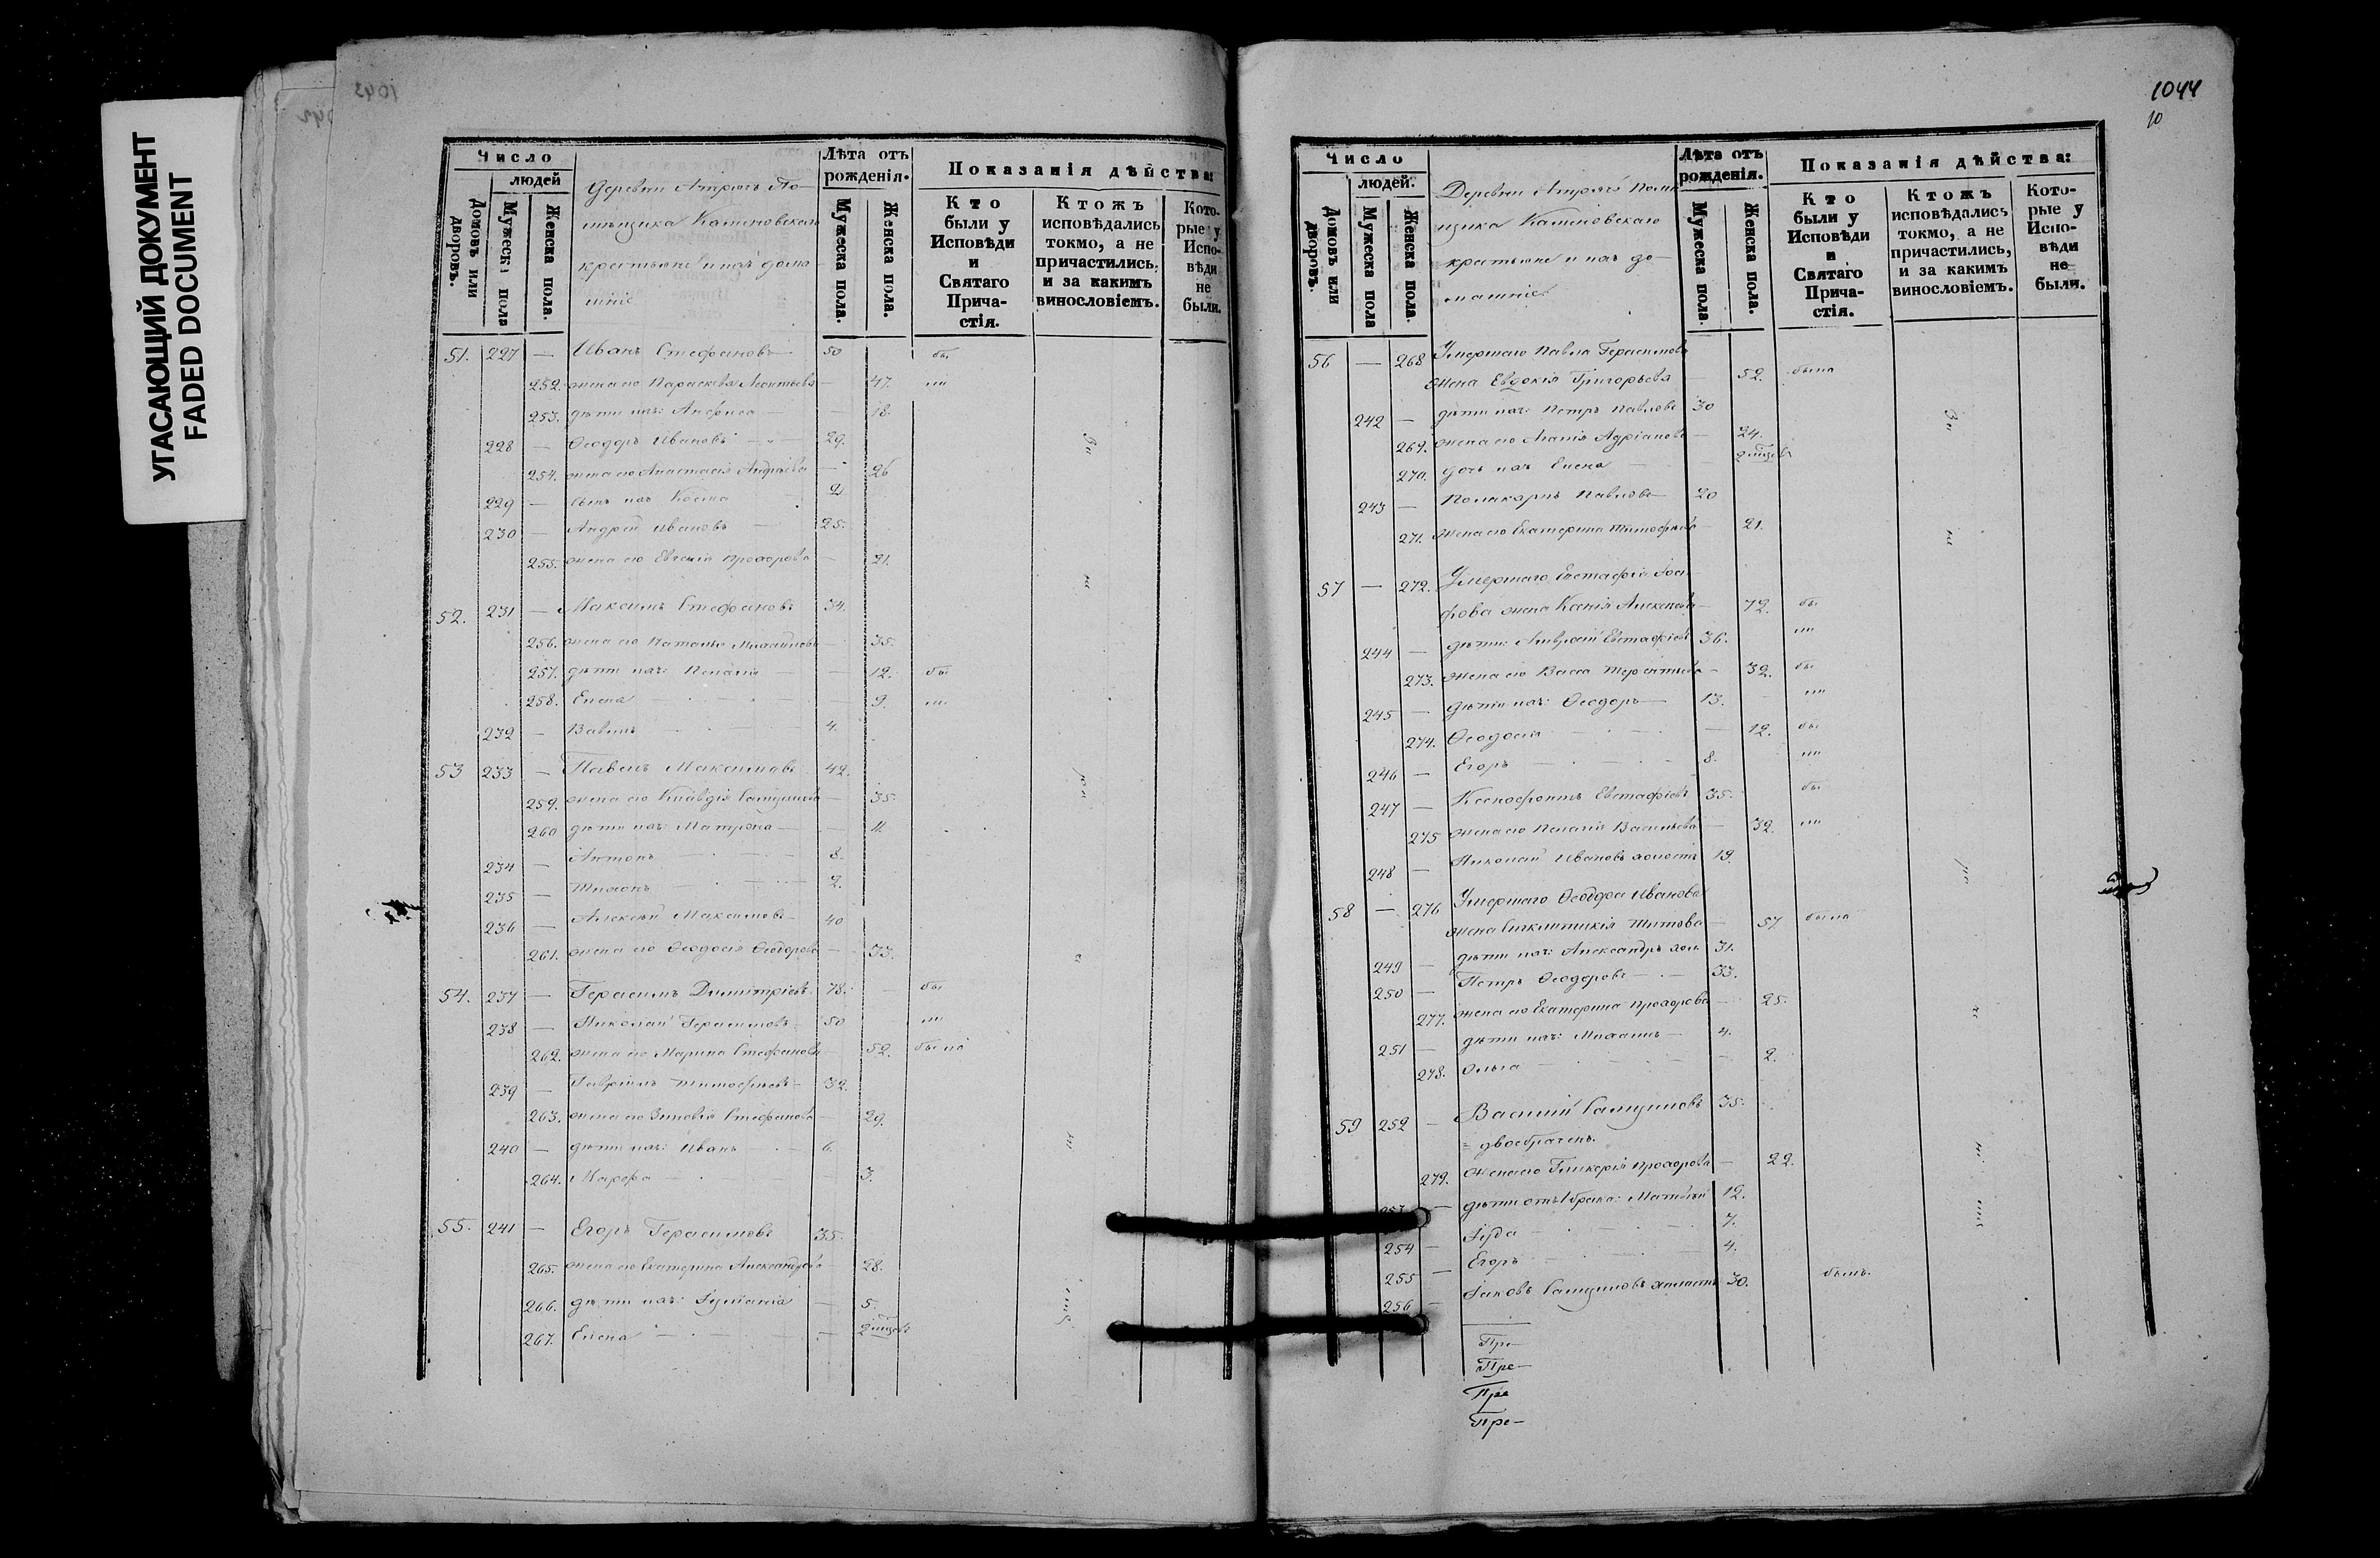 УГАСАЮЩИЙ ДОКУМЕНТ
FADED DOCUMENT
1043
Число
людей
Домовъ или дворовъ.
Мужеска пола
Женска пола.
Деревни По-
мѣщика
крестьяне и ихъ дома-
шніе
Лѣта отъ рожденія.
Мужеска пола.
Женска пола.
Показанія дѣйства:
Кто были у Исповѣди и Святаго Прича-стія.
Ктожъ исповѣдались токмо, а не причастились, и за какимъ винословіемъ.
Кото-рые у Испо-вѣди не были.
51. 227 — Иванъ Стефановъ 50 бы
252. жена его Параскева Леонтьева — 47. ли
253. дѣти ихъ: Анфиса — 18.
228 — Ѳеодоръ Ивановъ 29.
254. жена его Анастасія Андреева — 26
229 — сынъ ихъ Косма 2
230 — Андрей Ивановъ 25.
255. жена его Евгенія Прохорова — 21.
52. 231 — Максимъ Стефановъ 34.
256. жена его Наталья Михайлова — 35.
257. дѣти ихъ: Пелагія — 12. бы
258. Елена 9. ли
232 — Вавилъ 4.
53 233 — Павелъ Максимовъ 42.
259. жена его Клавдія — 35.
260 дѣти ихъ: Матрона — 11.
234 — Антонъ 8.
235 — Тихонъ 2.
236 — Алексѣй Максимовъ 40
261. жена его Ѳеодосія Ѳеодорова — 33.
54. 237 — Герасимъ Димитріевъ 78. бы
238 — Николай Герасимовъ 50 ли
262. жена его Марина Стефанова — 52. была
239 — Гавріилъ Тимофеевъ 32.
263. жена его Зиновія Стефанова — 29.
240 — дѣти ихъ: Иванъ 6.
264. Марфа 3.
55. 241 — Егоръ Герасимовъ 35.
265. жена его Екатерина Александрова — 28.
266. дѣти ихъ: Іуліанія — 5.
267. Елена —
1044
10
Число
людей.
Домовъ или дворовъ.
Мужеска пола
Женска пола.
Деревни Помѣ-
щика
крестьяне и ихъ до-
машніе
Лѣта отъ рожденія.
Мужеска пола.
Женска пола.
Показанія дѣйства:
Кто были у Исповѣди и Святаго Прича-стія.
Ктожъ исповѣдались токмо, а не причастились, и за какимъ винословіемъ.
Кото-рые у Испо-вѣди не были.
56 — 268 Умершаго Павла Герасимова
жена Евдокія Григорьева — 52. была
242 — дѣти ихъ: Петръ Павловъ 30
269. жена его Агапія Адріанова — 24.
270. дочь ихъ Елена —
243 — Поликарпъ Павловъ 20
271. жена его Екатерина Тимофеева — 21.
57 — 272. Умершаго Евстафія
жена Ксенія Алексеева — 72. бы
244 — дѣти: Амвросій Евстафіевъ 36. ли
273. жена его Васса Терентьева — 32. бы
245 — дѣти ихъ: Ѳеодоръ 13. ли
274. Ѳеодосія — 12. бы
246 — Егоръ 8. ли
247 — Ксенофонтъ Евстафіевъ 35. бы
275 жена его Пелагія Васильева — 32. ли
248 — Николай Ивановъ холостъ 19.
58 — 276 Умершаго Ѳеодора Иванова
жена Синклитикія Титова — 57 была
249 — дѣти ихъ: Александръ хол. 31.
250 — Петръ Ѳеодоровъ 33.
277. жена его Екатерина Прохорова — 25.
251 — дѣти ихъ: Михаилъ 4.
278. Ольга — 2.
59 252 — Василій 35.
= двоебраченъ.
279. жена его Гликерія Прохорова — 22.
253 — дѣти отъ 1 брака: Матѳей 12.
254 — Іуда 7.
255 — Егоръ 4.
256 — Іаковъ холостъ 30. былъ.
Пре—
Пре—
Пре
Пре—